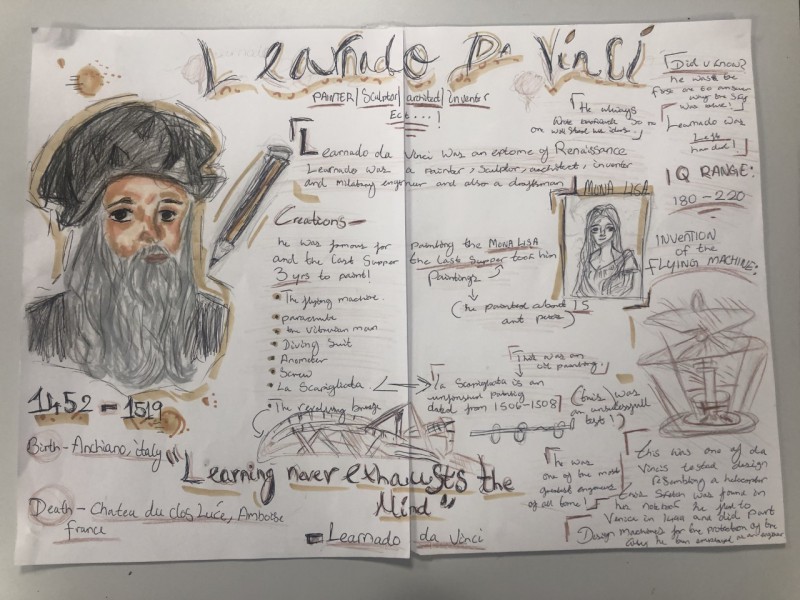 Learnado Da Vinci
PAINTER/Sculptor/architect/inventor
Ect...!
Did u know?
he was the
first one to answer
why the sky
was blue!
Learnado was
Left
handed!
He always
Learnado da Vinci was an eptome of Renaissance
Learnado was a Painter, Sculptor, architect, inventer
and military engineer and also a draftsman
IQ RANGE:
180-220
MONA LISA
Creations-
he was famous for painting the MONA LISA
and the Last Supper the Last Supper took him
3 yrs to paint!
Paintings
(he painted about 15
The flying machine.
parachute
the Vitruvian man
Diving Suit
Anometer
Screw
La Scarigliata
la Scarigliata is an
unfinished painting
dated from 1506-1508
That was an
oil painting.
(this) was
an unsuccessfull
test!)
INVENTION
of the
FLYING MACHINE:
The revolving bridge
1452-1519
Birth-Anchiano, italy
Death-Chateu du clos Lucé, Amboise
france
"Learning never exhausts the
Mind"
- Learnado da Vinci
He was
one of the most
greatest engineers
of all time!
this was one of da
Vincis tested design
resembling a helicopter
this Sketch was found in
his notebook he fled to
Venice in and did part
Design machines for the protection of the
city he was as an engineer